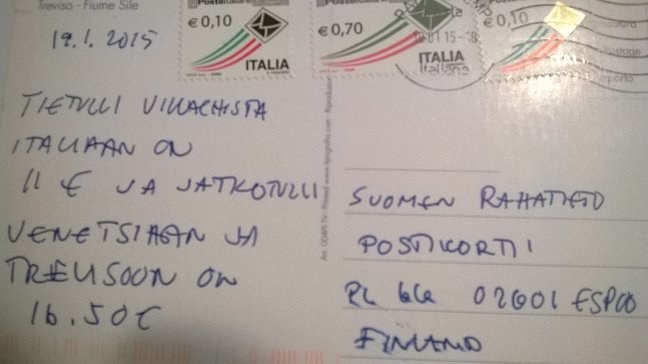 Treviso - Fiume Sile
19.1.2015
Posteitaliane
€ 0,10
ITALIA
Posteitaliane
€ 0,70
ITALIA
Italiane
€ 0,10
19.01.15-18
TIETULLI VILLACHISTA
ITALIAAN ON
11 € JA JATKOTULLI
VENETSIAAN JA
TREVISOON ON
16.50€
SUOMEN RAHATIETO
POSTIKORTTI
PL 66 02601 ESPOO
FINLAND